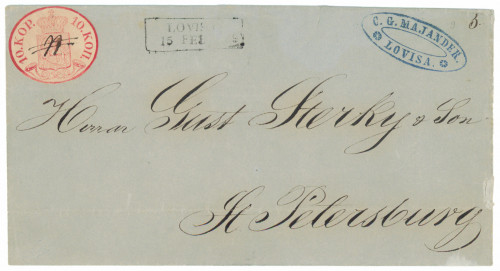 10. KOP. 10. КОП.
LOVISA
15 FEB
C. G. MAJANDER.
LOVISA.
Herrar Gust Sterky & Son
St Petersburg